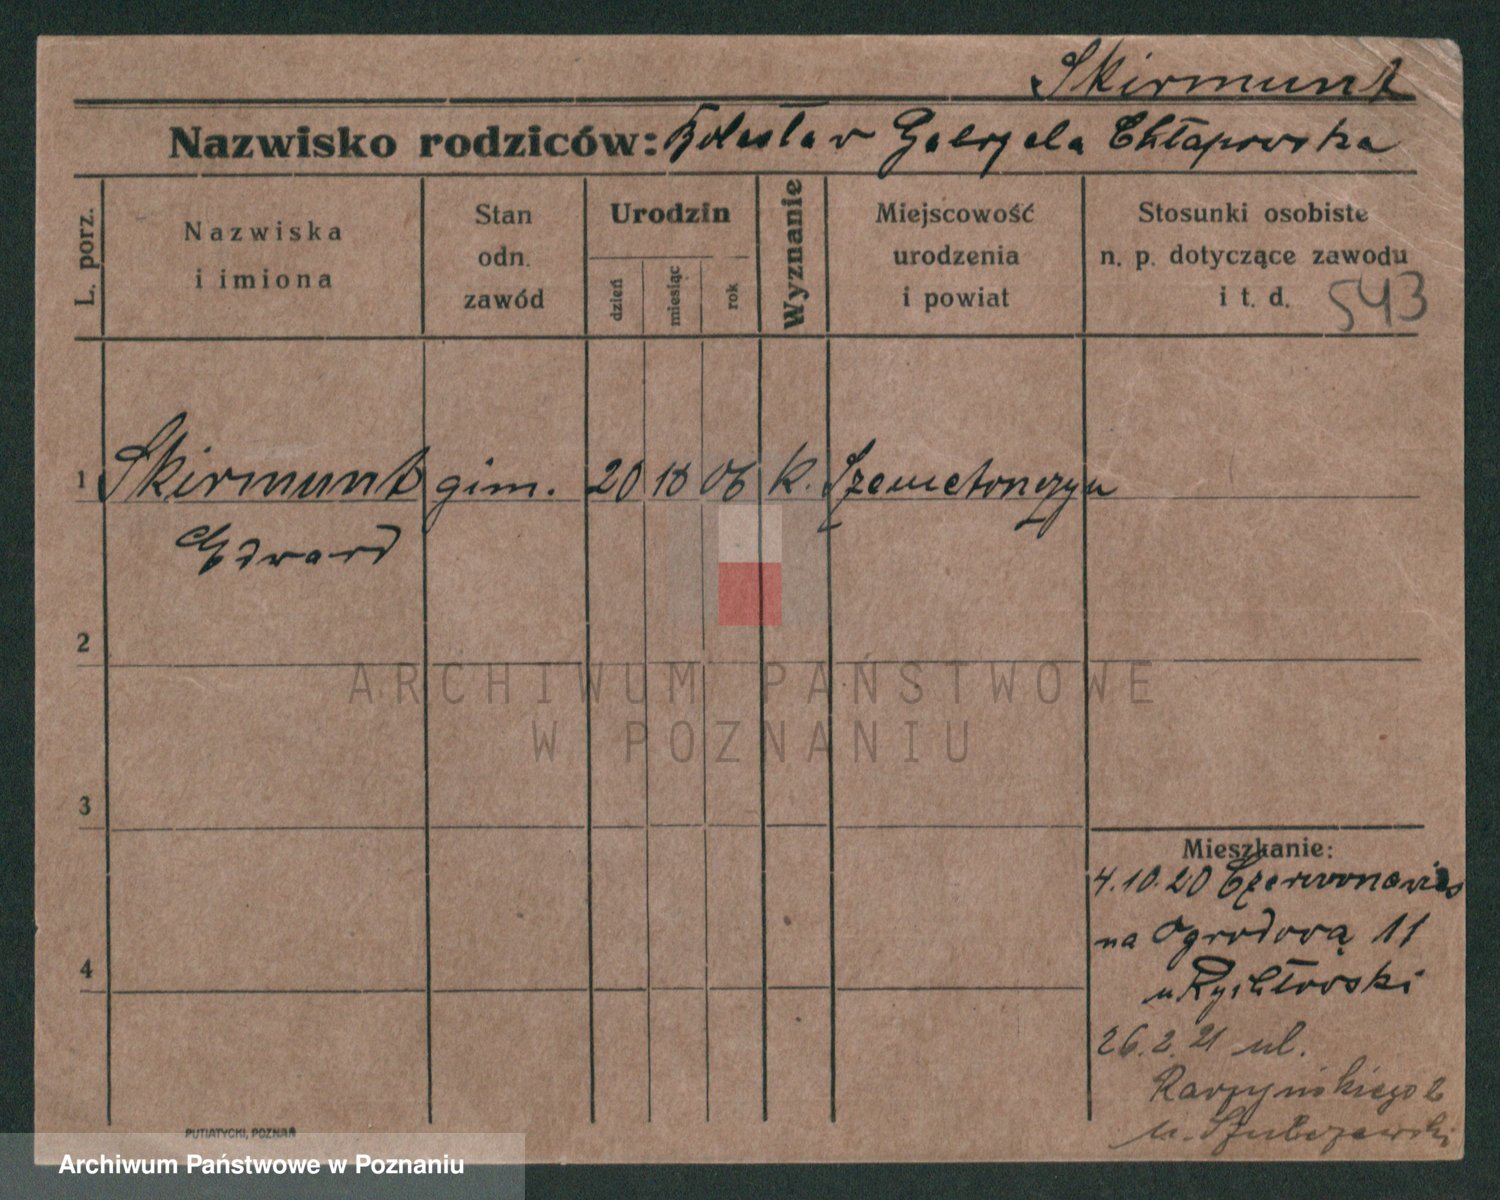 Skirmunt
Nazwisko rodziców: Bolesław Gabryela Chłapowska
L. porz.
Nazwiska
i imiona
Stan
odn.
zawód
Urodzin
dzień
miesiąc
rok
Wyznanie
Miejscowość
urodzenia
i powiat
Stosunki osobiste
n. p. dotyczące zawodu
i t. d.
543
1 Skirmunt gim. 20 10 06 k.
Edward
2
ARCHIWUM PAŃSTWOWE
W POZNANIU
3
4
Mieszkanie:
4.10.20
na Ogrodową 11
u Rychłowski
26.2.21 ul.
PUTIATYCKI, POZNAŃ
Archiwum Państwowe w Poznaniu